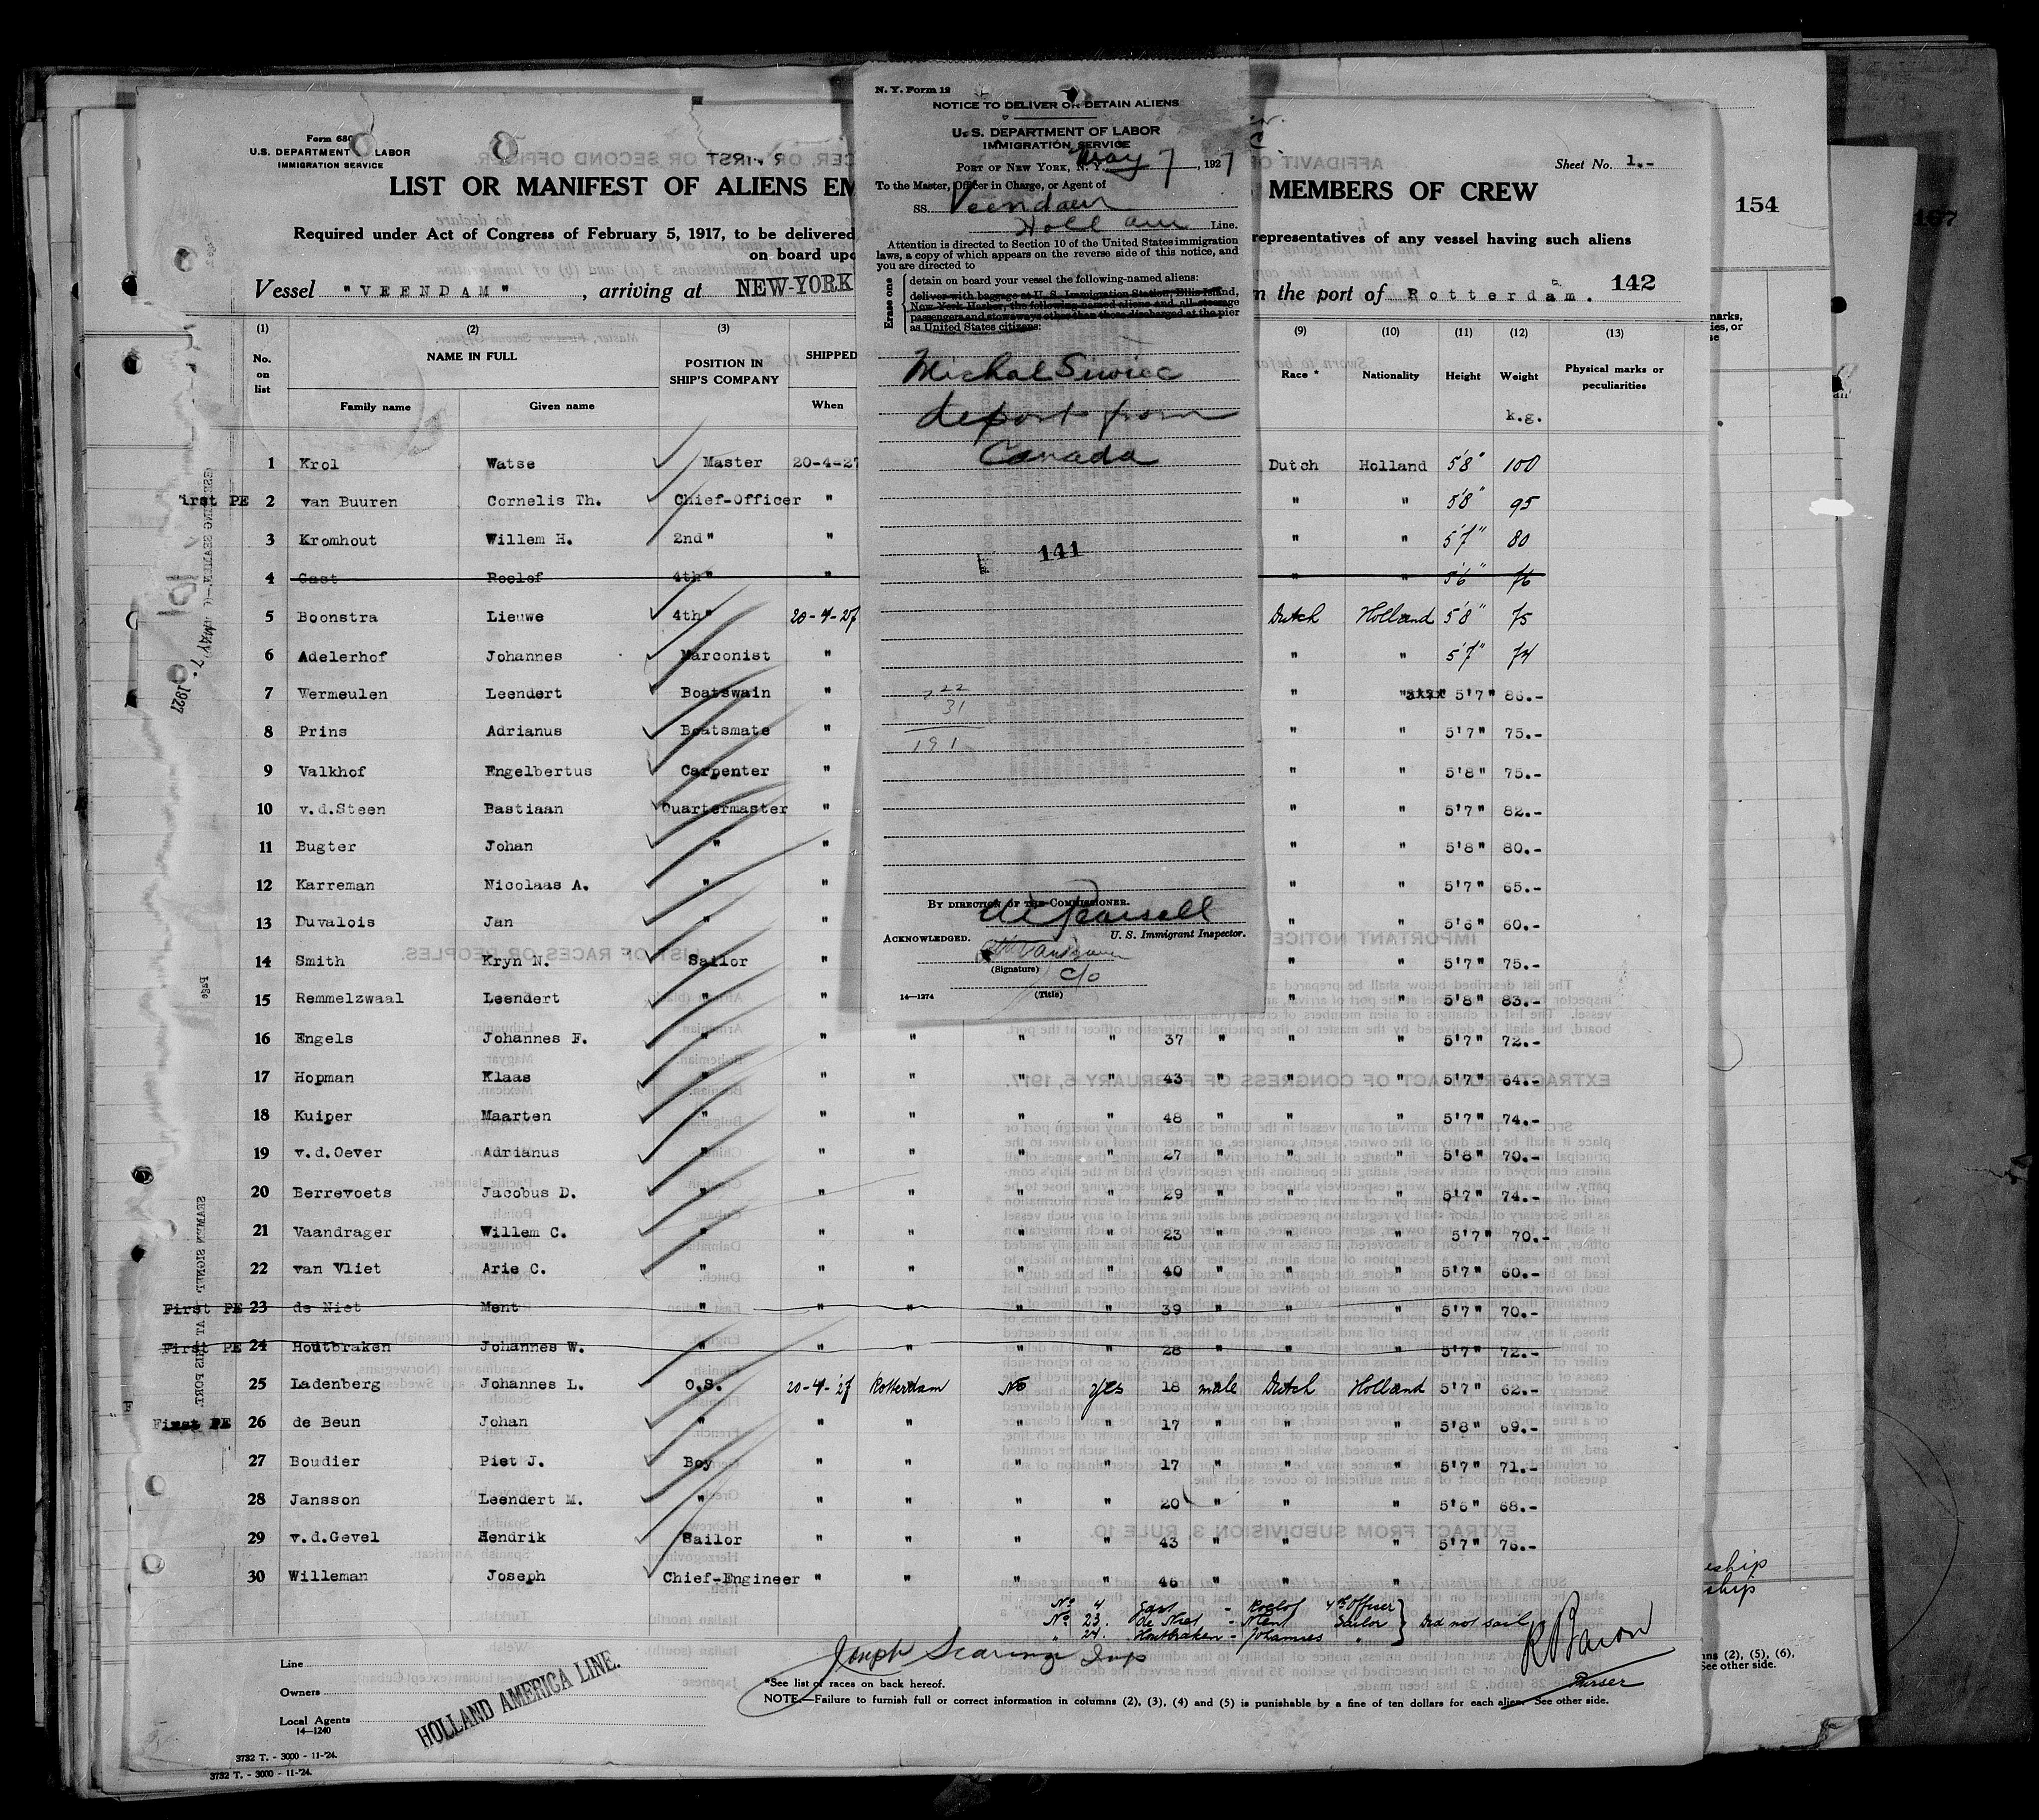 Form 680
U.S. DEPARTMENT LABOR
IMMIGRATION SERVICE
Sheet No. 1.-
LIST OR MANIFEST OF ALIENS EM
MEMBERS OF CREW
Required under Act of Congress of February 5, 1917, to be delivered
representatives of any vessel having such aliens
on board upo
Vessel "VEENDAM", arriving at NEW-YORK
the port of Rotterdam. 142
154
167
N. Y. Form 12
NOTICE TO DELIVER OR DETAIN ALIENS
U. S. DEPARTMENT OF LABOR
IMMIGRATION SERVICE
PORT OF NEW YORK, N. Y. May 7, 1927
To the Master, Officer in Charge, or Agent of
SS. Veendam
Holl Am Line.
Attention is directed to Section 10 of the United States immigration
laws, a copy of which appears on the reverse side of this notice, and
you are directed to
Erase one
detain on board your vessel the following-named aliens:
deliver with baggage at U. S. Immigration Station, Ellis Island,
New York Harbor, the following-named aliens and all steerage
passengers and stowaways other than those discharged at the pier
as United States citizens:
Michal Siwiec
deport from
Canada
141
22
31
191
BY DIRECTION OF THE COMMISSIONER.
U. S. Immigrant Inspector.
ACKNOWLEDGED.
(Signature)
c/o
(Title)
14—1274
(1) (2) (3) (9) (10) (11) (12) (13)
No. on list NAME IN FULL POSITION IN SHIP'S COMPANY SHIPPED Race * Nationality Height Weight Physical marks or peculiarities
Family name Given name When k.g.
1 Krol Watse Master 20-4-27 Dutch Holland 5'8" 100
irst PE 2 van Buuren Cornelis Th. Chief-Officer " " " 5'8" 95
3 Kromhout Willem H. 2nd " " " " 5'7" 80
4 Gast Roelof 4th " " " " 5'6" 76
5 Boonstra Lieuwe 4th " 20-4-27 Dutch Holland 5'8" 75
6 Adelerhof Johannes Marconist " " " 5'7" 74
7 Vermeulen Leendert Boatswain " " " 5'7" 86.-
8 Prins Adrianus Boatsmate " " " 5'7" 75.-
9 Valkhof Engelbertus Carpenter " " " 5'8" 75.-
10 v.d.Steen Bastiaan Quartermaster " " " 5'7" 82.-
11 Bugter Johan " " " " 5'8" 80.-
12 Karreman Nicolaas A. " " " " 5'7" 65.-
13 Duvalois Jan " " " " 5'6" 60.-
14 Smith Kryn N. Sailor " " " 5'7" 75.-
15 Remmelzwaal Leendert " " " " 5'8" 83.-
16 Engels Johannes F. " " " " " 37 " " " 5'7" 72.-
17 Hopman Klaas " " " " " 43 " " " 5'7" 64.-
18 Kuiper Maarten " " " " " 48 " " " 5'7" 74.-
19 v.d.Oever Adrianus " " " " " 27 " " " 5'8" 70.-
20 Berrevoets Jacobus D. " " " " " 29 " " " 5'7" 74.-
21 Vaandrager Willem C. " " " " " 23 " " " 5'7" 70.-
22 van Vliet Arie C. " " " " " 40 " " " 5'7" 60.-
First PE 23 de Niet Ment " " " " " 39 " " " 5'7" 70.-
First PE 24 Houtbraken Johannes W. " " " " " 28 " " " 5'7" 72.-
25 Ladenberg Johannes L. O.S. 20-4-27 Rotterdam No yes 18 male Dutch Holland 5'7" 62.-
First PE 26 de Beun Johan " " " " " 17 " " " 5'8" 69.-
27 Boudier Piet J. Boy " " " " 17 " " " 5'7" 71.-
28 Jansson Leendert M. " " " " " 20 " " " 5'6" 68.-
29 v.d.Gevel Hendrik Sailor " " " " 43 " " " 5'7" 76.-
30 Willeman Joseph Chief-Engineer " " " " 46 " " "
No 4 Gast - Roelof 4th Officer
No 23. de Niet - Ment Sailor } Did not sail
" 24. Houtbraken - Johannes "
Joseph Scaringi Insp
Purser
Line
Owners
Local Agents
14—1240
HOLLAND AMERICA LINE.
*See list of races on back hereof.
NOTE.—Failure to furnish full or correct information in columns (2), (3), (4) and (5) is punishable by a fine of ten dollars for each alien. See other side.
3732 T. - 3000 - 11-'24.
3732 T. - 3000 - 11-'24.
MAY 7 - 1927
ns (2), (5), (6),
See other side.